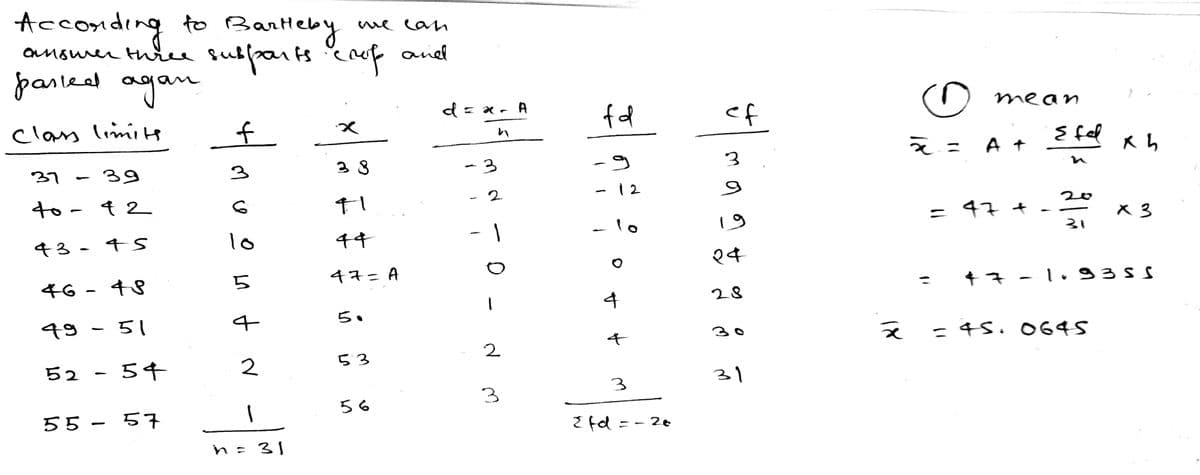 According to Bartleby we can
answer three subparts crop and
pasted agan
class limits f x d = x - A / h fd cf
37 - 39 3 38 - 3 - 9 3
40 - 42 6 41 - 2 - 12 9
43 - 45 10 44 - 1 - 10 19
46 - 48 5 47 = A 0 0 24
49 - 51 4 50 1 4 28
52 - 54 2 53 2 4 30
55 - 57 1 56 3 3 31
n = 31 Σfd = - 20
① mean
x̄ = A + Σfd / n × h
= 47 + - 20 / 31 × 3
= 47 - 1.9355
x̄ = 45.0645